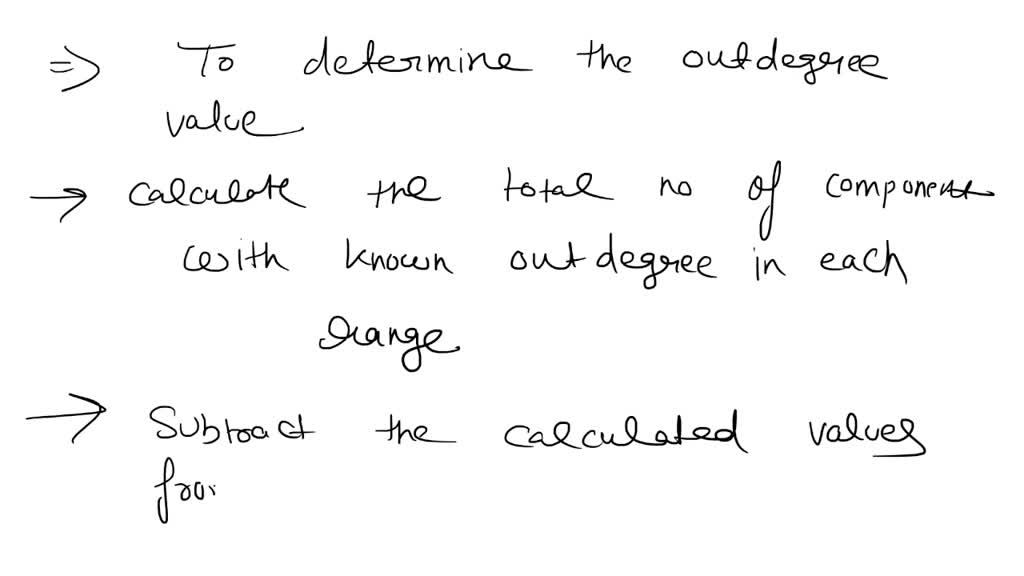 ⇒ To determine the outdegree
value
→ calculate the total no of component
with known outdegree in each
range
→ Subtract the calculated values
from